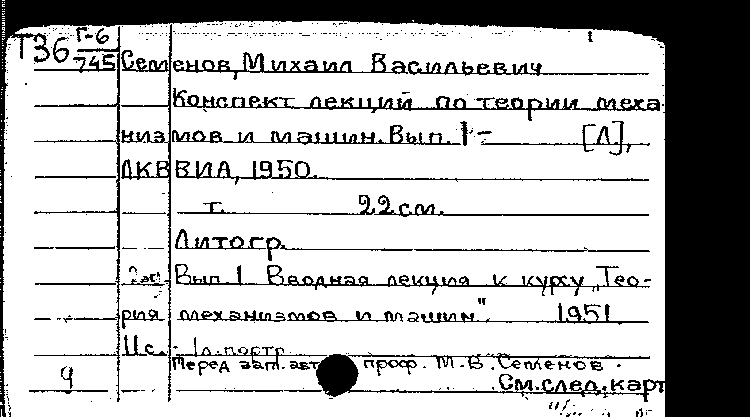 Т36 Г-6/745
Семенов, Михаил Васильевич
Конспект лекций по теории меха
низмов и машин. Вып. 1- [Л],
ЛКВВИА, 1950.
т. 22 см.
Литогр.
Вып. 1 Вводная лекция к курсу „Тео-
рия механизмов и машин". 1951.
11 с. 1 л. портр.
Перед загл. авт. проф. М. В. Семенов.
9 См. след. карт